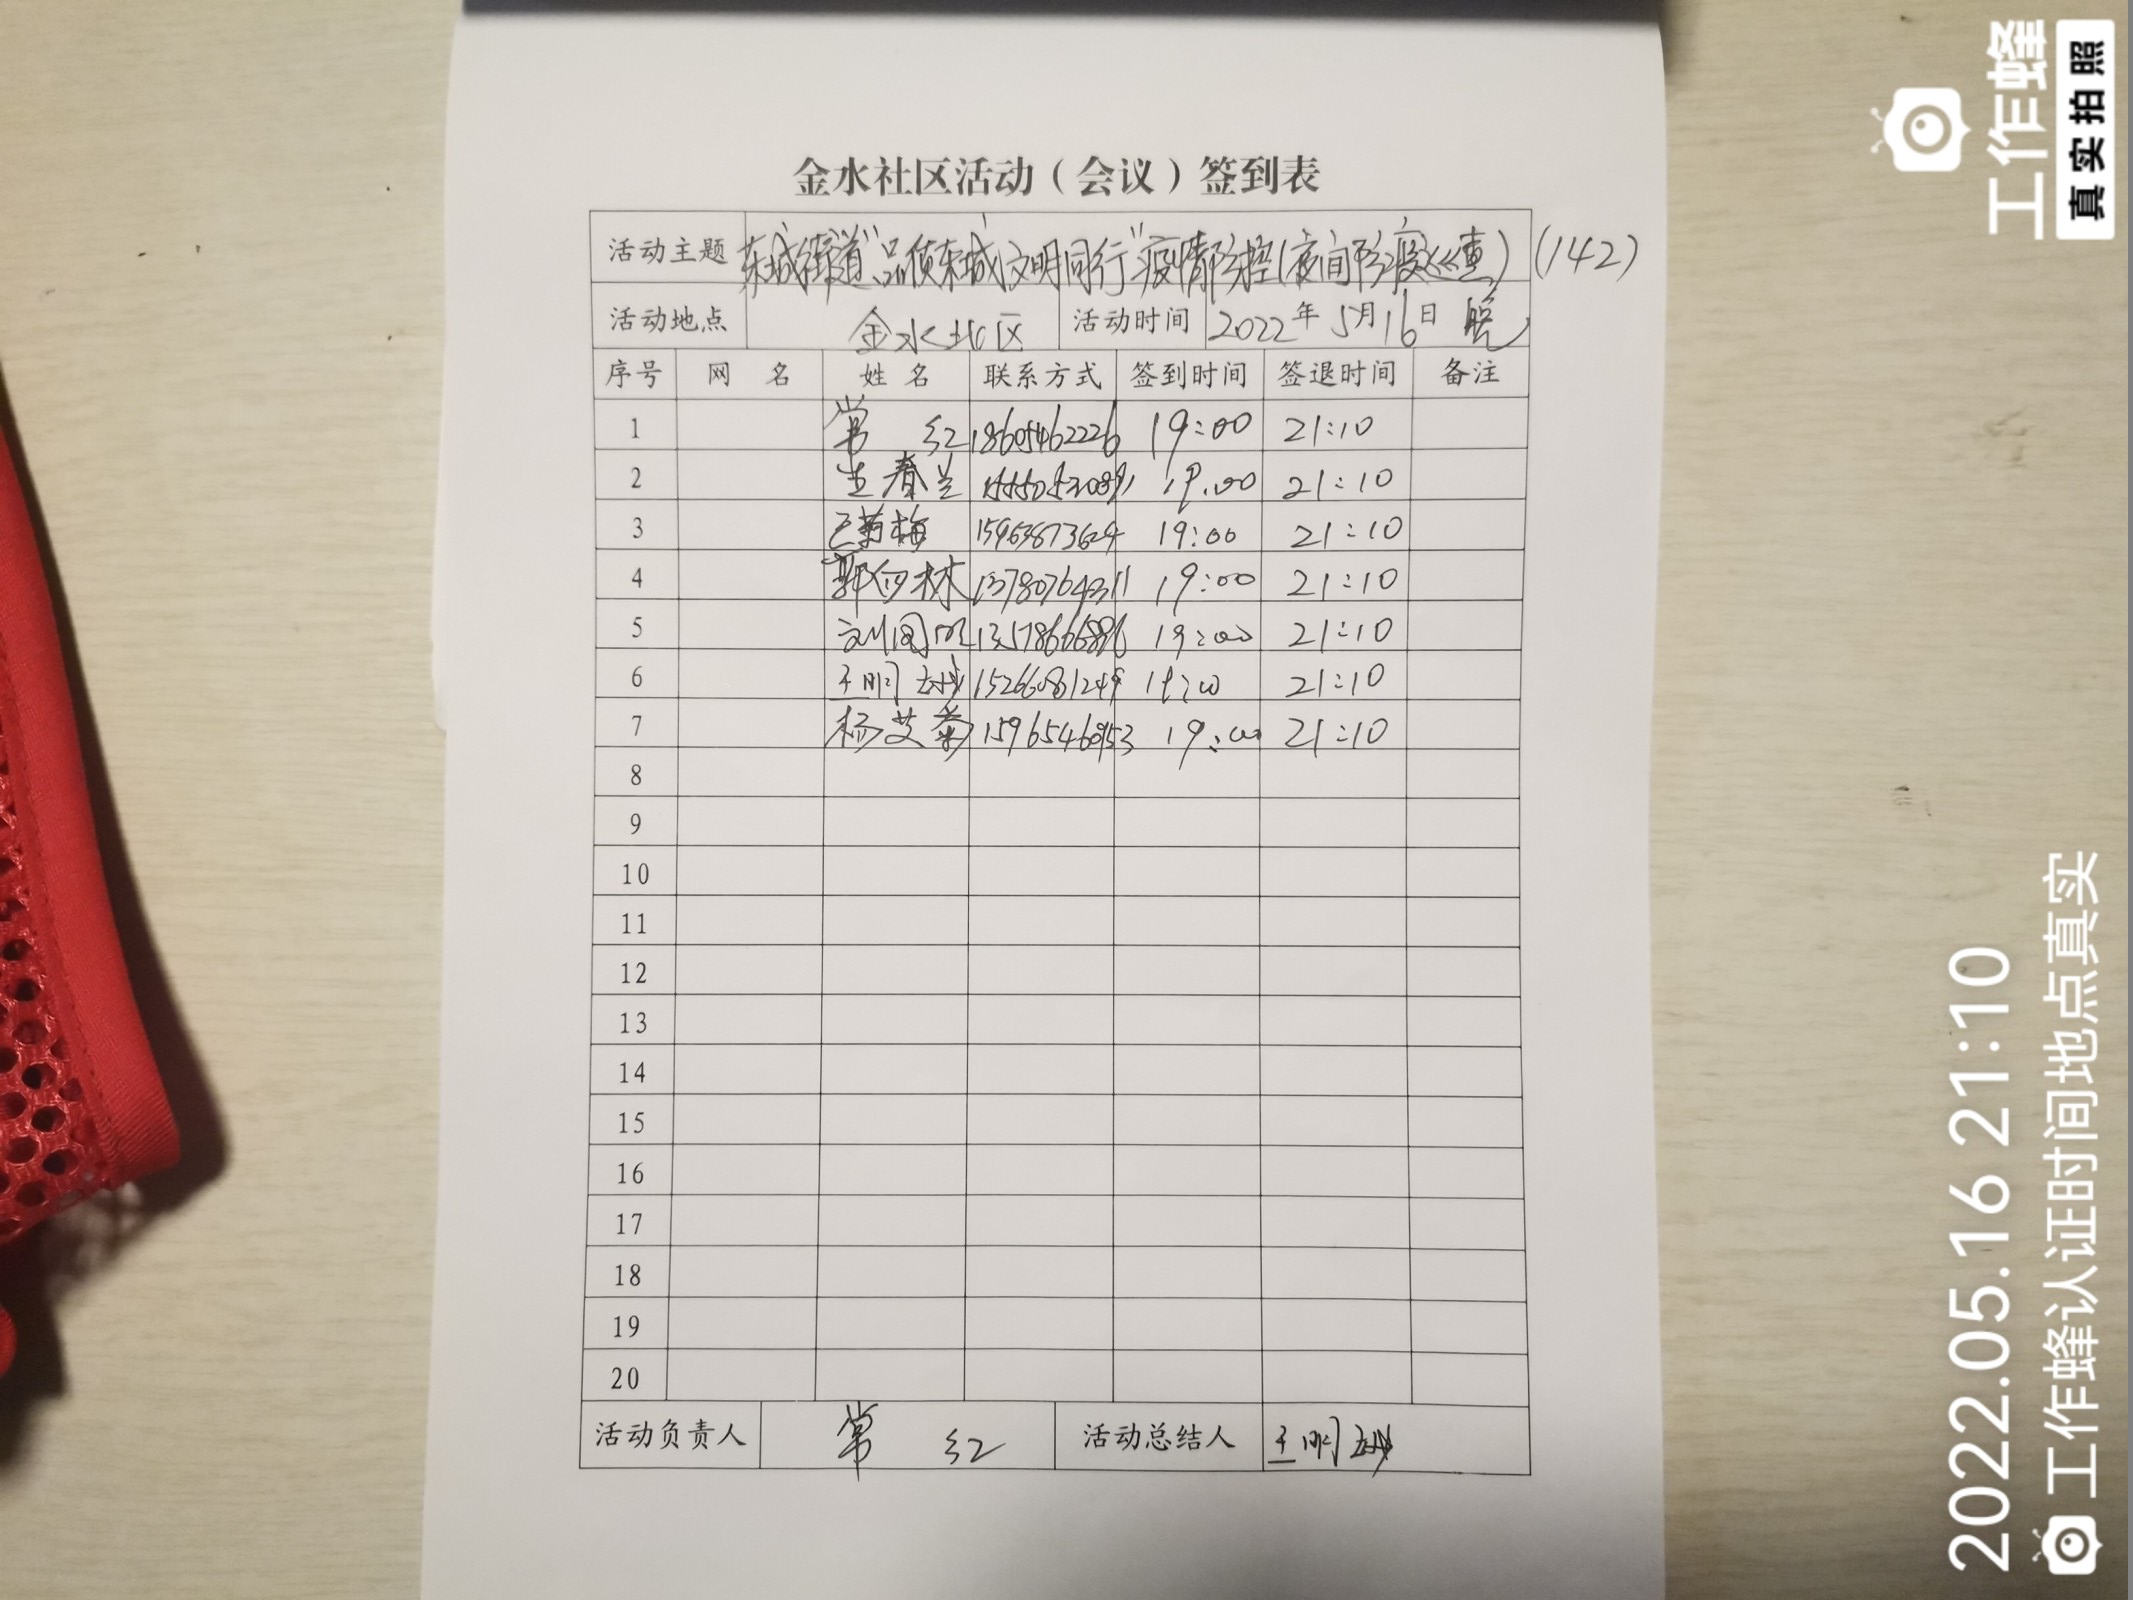 金水社区活动（会议）签到表
活动主题 东城街道"品质东城 文明同行"疫情防控(夜间防疫巡查) (142)
活动地点 金水北区 活动时间 2022年5月16日 晚
序号 网 名 姓 名 联系方式 签到时间 签退时间 备注
1 常 红 18605462226 19:00 21:10
2 春兰 19:00 21:10
3 菊梅 19:00 21:10
4 郭向林 13780764311 19:00 21:10
5 刘国 19:00 21:10
6 王明 19:00 21:10
7 杨艾菊 19:00 21:10
8
9
10
11
12
13
14
15
16
17
18
19
20
活动负责人 常 红 活动总结人 王明
工作蜂
真实拍照
2022.05.16 21:10
工作蜂认证时间地点真实